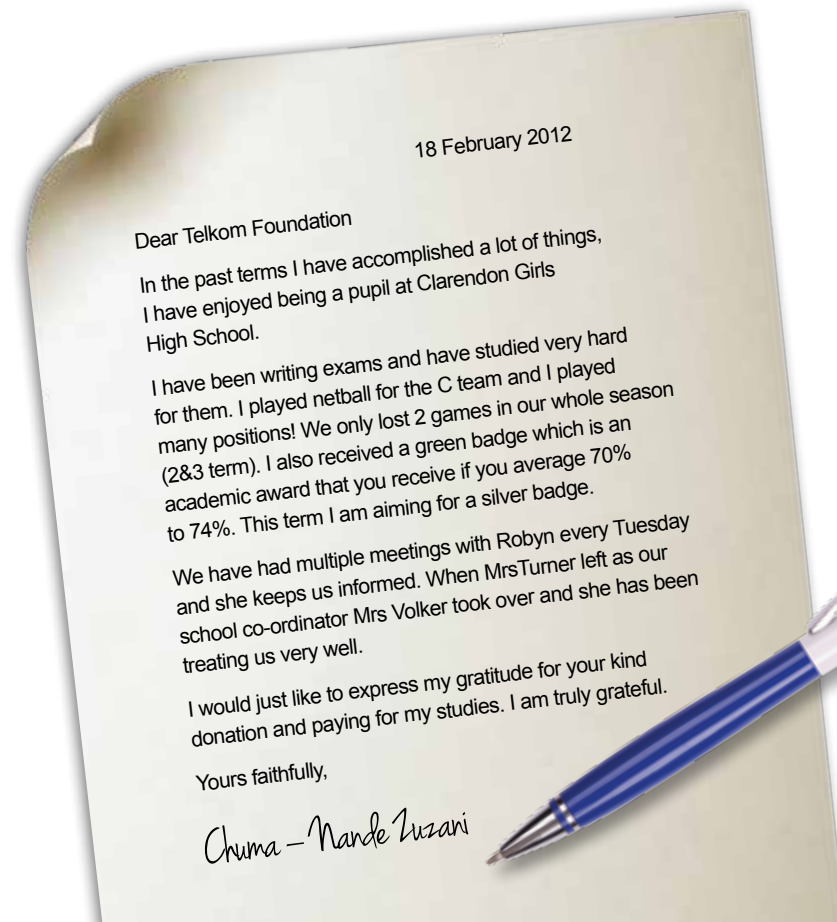 18 February 2012
Dear Telkom Foundation
In the past terms I have accomplished a lot of things,
I have enjoyed being a pupil at Clarendon Girls
High School.
I have been writing exams and have studied very hard
for them. I played netball for the C team and I played
many positions! We only lost 2 games in our whole season
(2&3 term). I also received a green badge which is an
academic award that you receive if you average 70%
to 74%. This term I am aiming for a silver badge.
We have had multiple meetings with Robyn every Tuesday
and she keeps us informed. When MrsTurner left as our
school co-ordinator Mrs Volker took over and she has been
treating us very well.
I would just like to express my gratitude for your kind
donation and paying for my studies. I am truly grateful.
Yours faithfully,
Chuma – Nande Zuzani